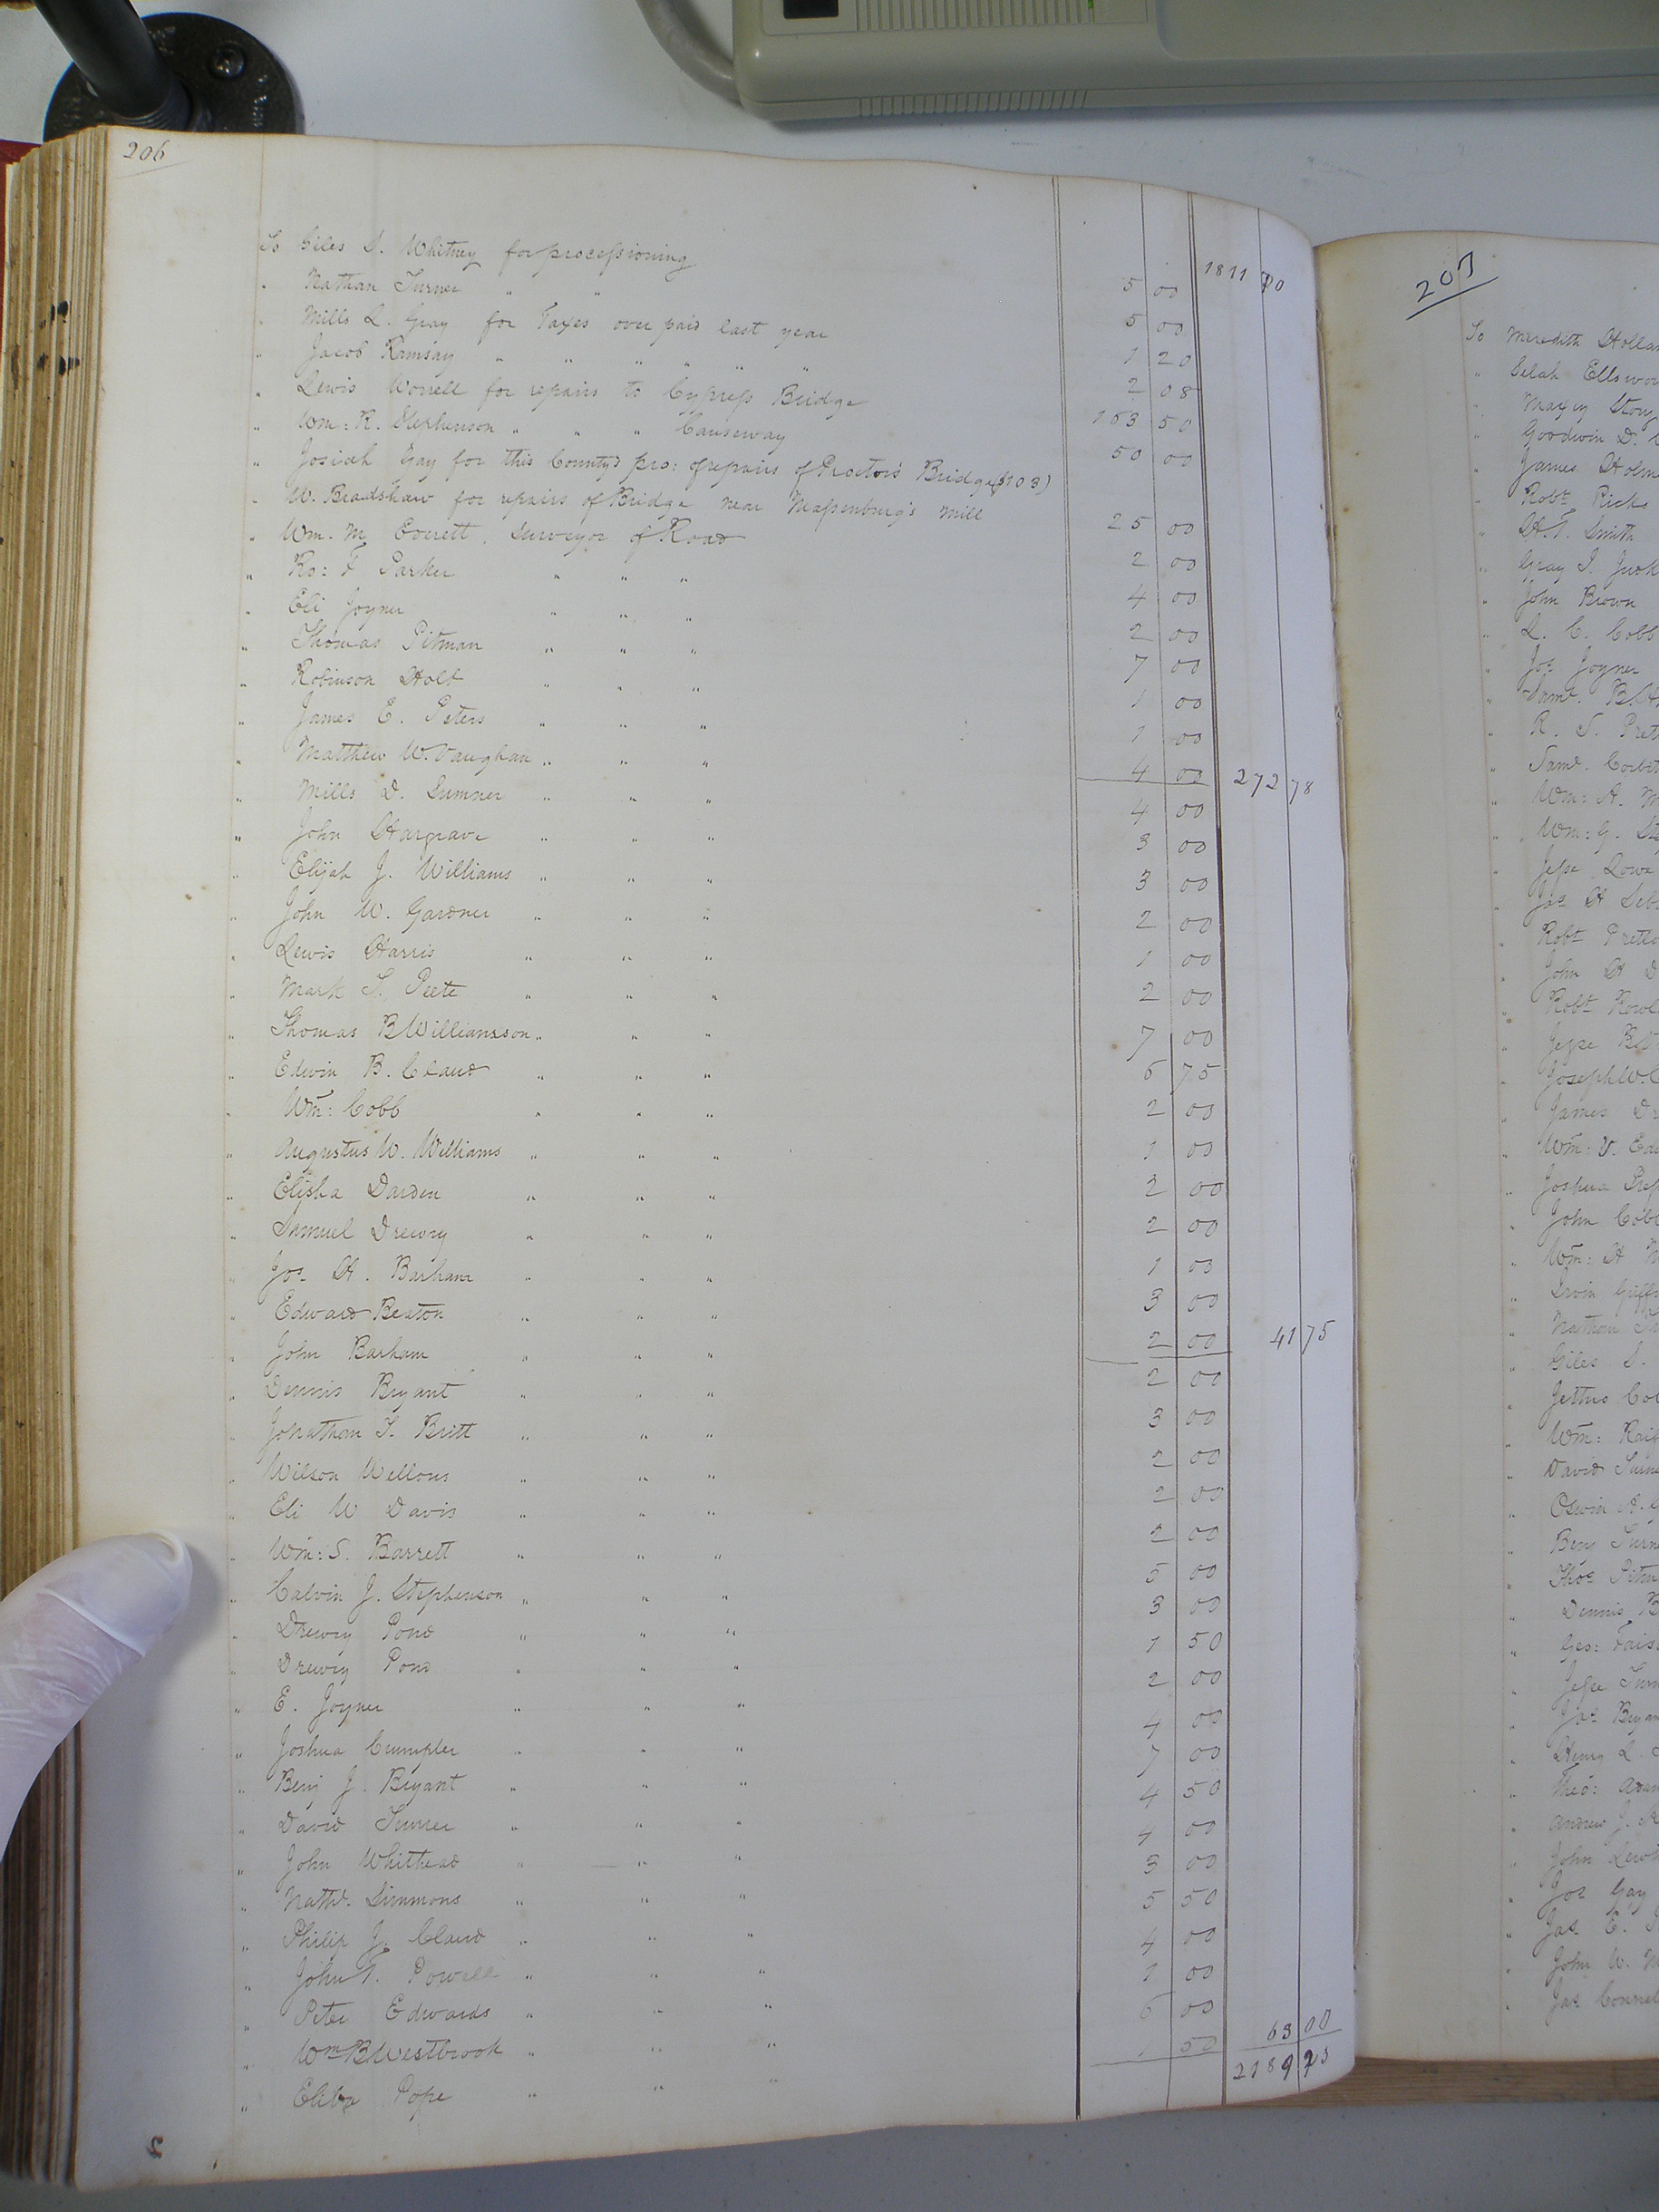 206
1811 70
To Giles S. Whitney for processioning 5 00
" Nathan Turner " " 5 00
" Mills L. Gray for Taxes over paid last year 1 20
" Jacob Ramsay " " " " " 2 08
" Lewis Worrell for repairs to Cypress Bridge 153 50
" Wm: R. Stephenson " " " Causeway 50 00
" Josiah Gay for this County's pro: of repairs of Proctor's Bridge ($103)
" W. Bradshaw for repairs of Bridge near Massenburg's mill 25 00
" Wm. M. Everett, Surveyor of Road 2 00
" Ro: F Parker " " " 4 00
" Eli Joyner " " " 2 00
" Thomas Pitman " " " 7 00
" Robinson Holt " " " 1 00
" James E. Peters " " " 1 00
" Matthew W. Vaughan " " " 4 00 272 78
" Mills D. Sumner " " " 4 00
" John Hargrave " " " 3 00
" Elijah J. Williams " " " 3 00
" John W. Gardner " " " 2 00
" Lewis Harris " " " 1 00
" Mark S. Peete " " " 2 00
" Thomas B Williamson " " " 7 00
" Edwin B. Claud " " " 6 75
" Wm: Cobb " " " 2 00
" Augustus W. Williams " " " 1 00
" Elisha Darden " " " 2 00
" Samuel Drewry " " " 2 00
" Jos. H. Barham " " " 1 00
" Edward Beaton " " " 3 00
" John Barham " " " 2 00 41 75
" Dennis Bryant " " " 2 00
" Johnathan T. Britt " " " 3 00
" Wilson Wellons " " " 2 00
" Eli W Davis " " " 2 00
" Wm: S. Barrett " " " 2 00
" Calvin J. Stephenson " " " 5 00
" Drewry Pond " " " 3 00
" Drewry Pond " " " 1 50
" E. Joyner " " " 2 00
" Joshua Crumpler " " " 4 00
" Benj J. Bryant " " " 7 00
" David Turner " " " 4 50
" John Whithead " " " 4 00
" Nathl. Simmons " " " 3 00
" Philip J. Claud " " " 5 50
" John T. Powell " " " 4 00
" Peter Edwards " " " 1 00
" Wm B Westbrook " " " 6 00
" Pope " " " 1 50 63 00
2189 23
207
To Meredith
" Selah
" Maxey
" Goodwin D.
" James
" Robt Ricks
" Smith
" Gray
" John Brown
" L. C. Cobb
" Jos. Joyner
" Saml. B.
" R. S.
" Saml.
" Wm: A.
" Wm: G.
" Jesse Lowe
" Jas H
" Robt
" John H
" Robt
" Jesse
" Joseph W.
" James
" Wm: V.
" Joshua
" John
" Wm: H
" Irvin
" Nathan
" Giles S.
" Jethro
" Wm:
" David
" Edwin
" Benj
" Thos
" Dennis
" Geo:
" Jesse
" Jas.
" Henry L.
" Theo:
" Andrew J.
" John
" Jos Gay
" Jas. E.
" John W.
" Jas.